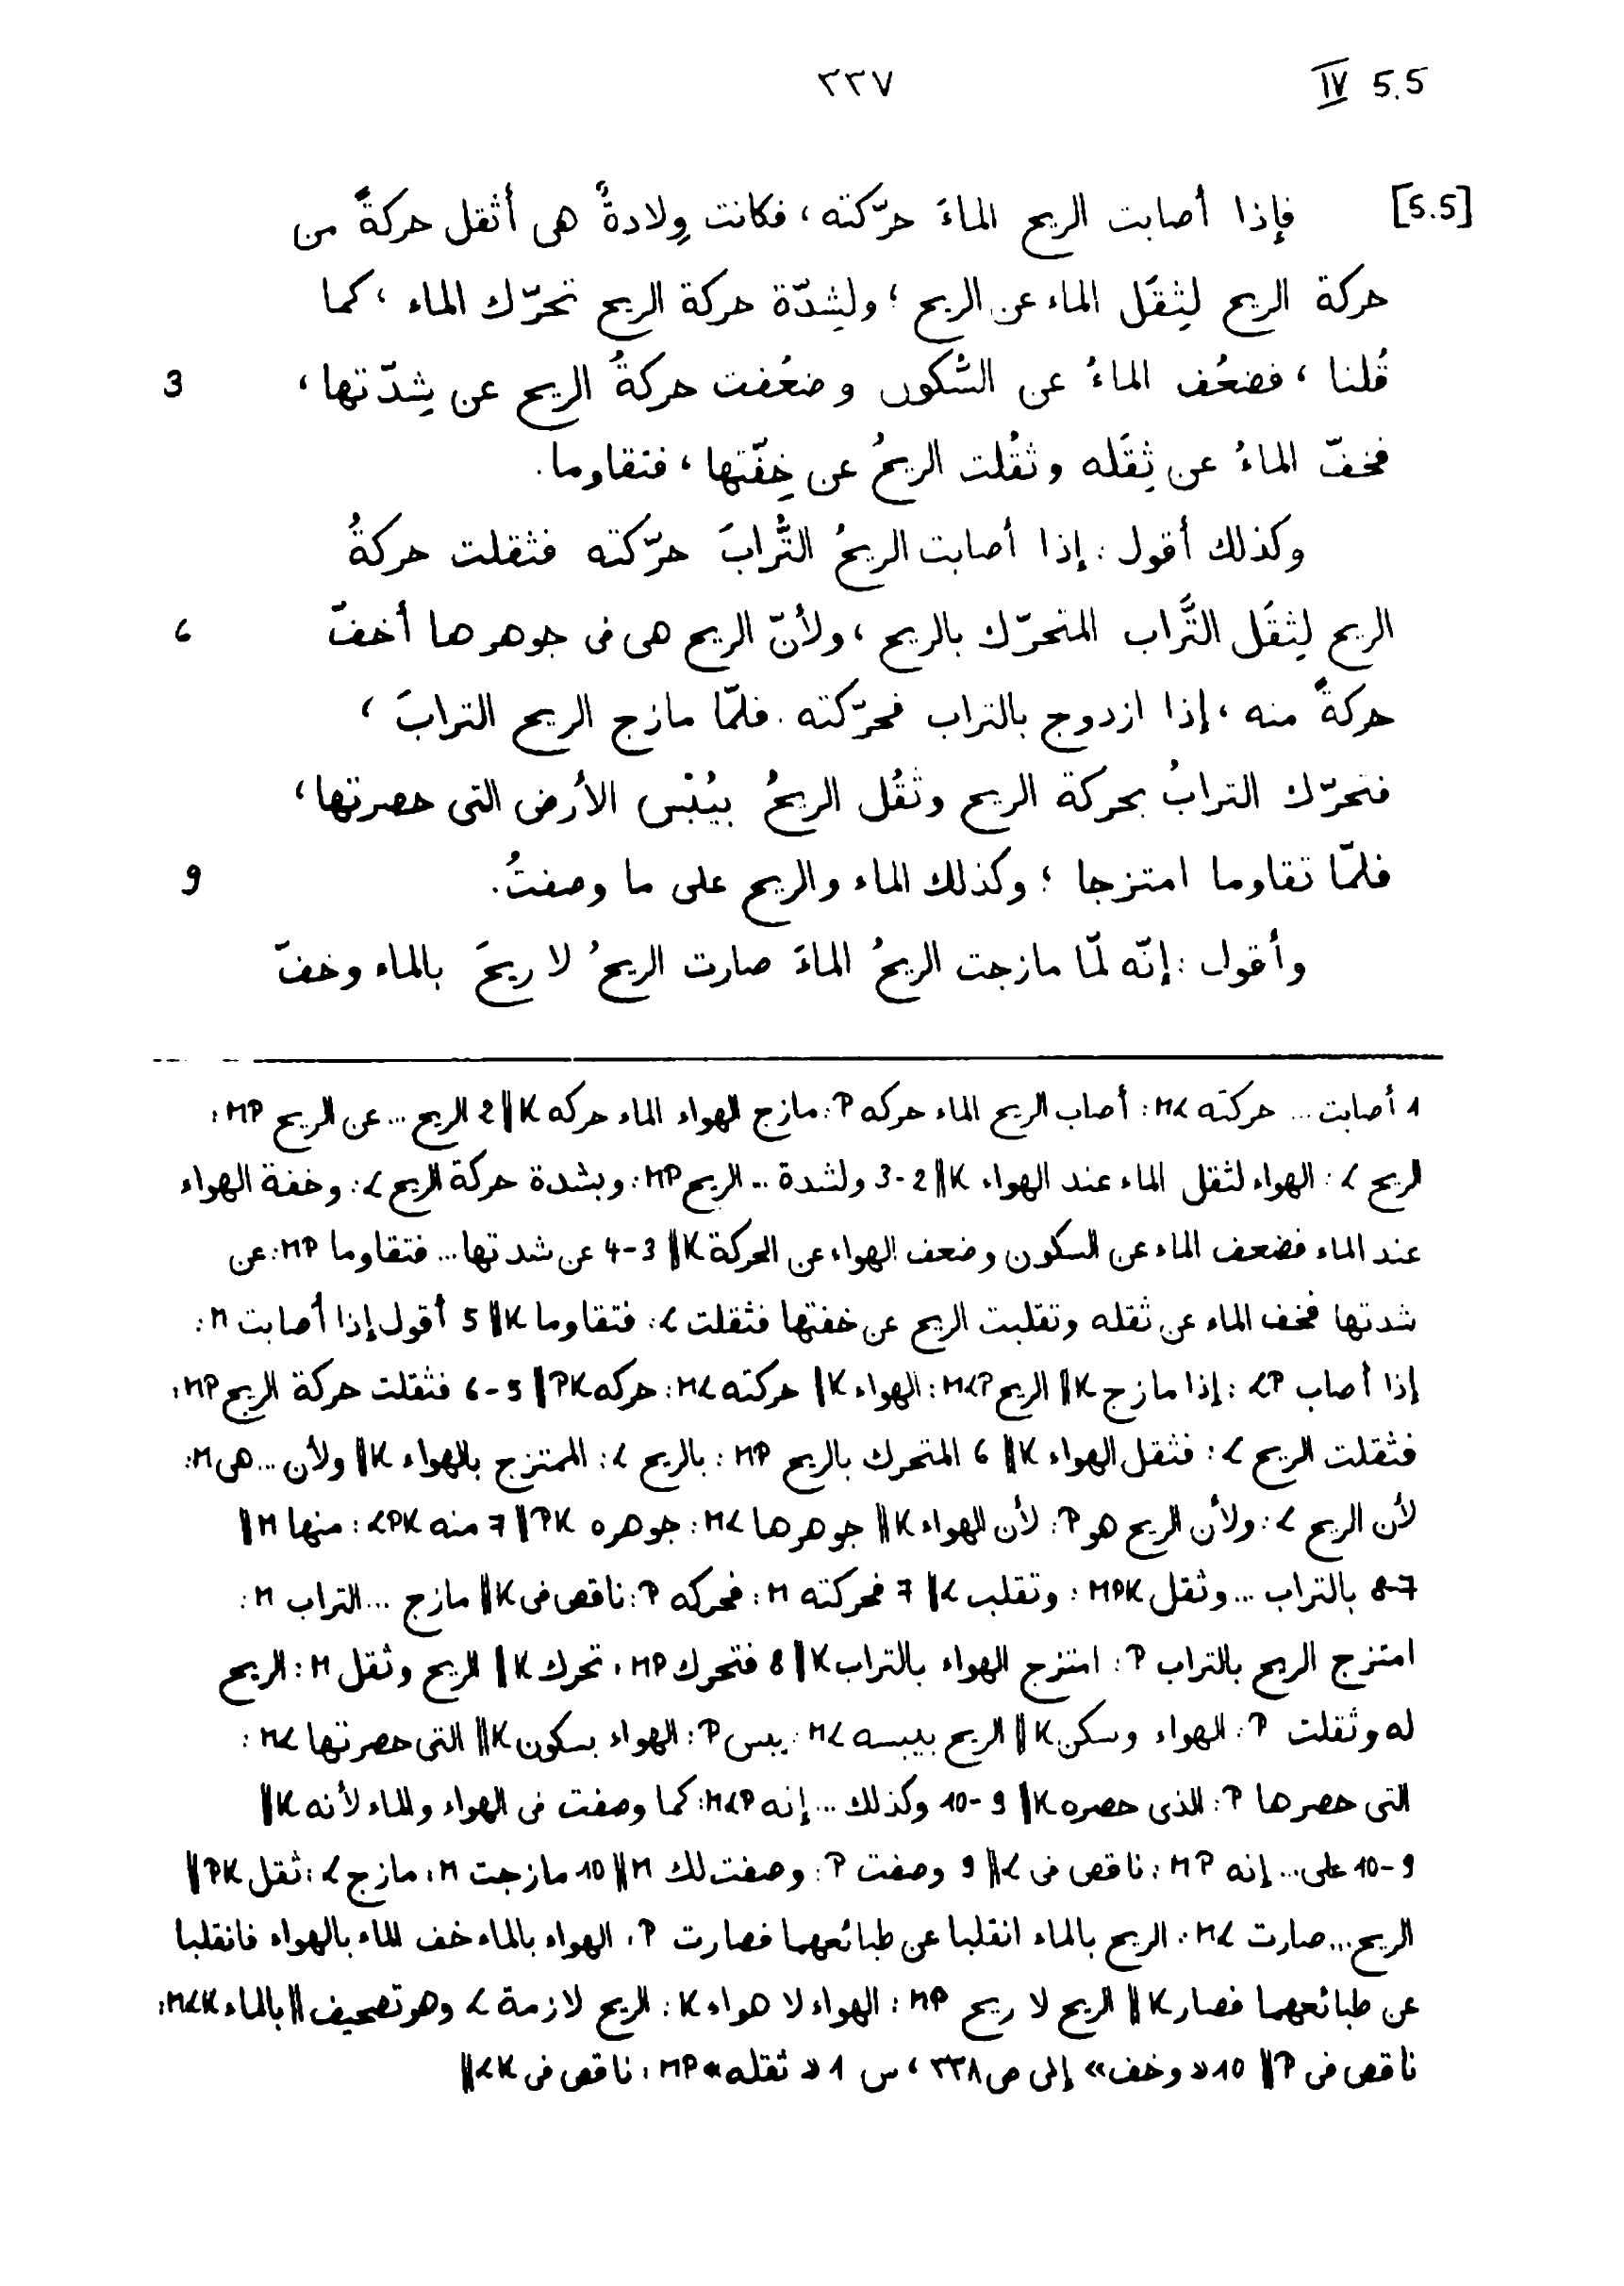 ٣٣٧ IV 5.5
[5.5] فإذا أصابت الريح الماءَ حرّكته، فكانت وِلادةٌ هى أثقل حركةً من
حركة الريح لِثِقَل الماء عن الريح؛ ولشِدّة حركة الريح تحرّك الماء، كما
قُلنا، فضعُف الماءُ عن السُّكون وضعُفت حركةُ الريح عن شِدّتها، 3
فخفّ الماءُ عن ثِقَله وثقُلت الريحُ عن خِفّتها، فتقاوما.
وكذلك أقول: إذا أصابت الريحُ التُّرابَ حرّكته فثقلت حركةُ
الريح لِثِقَل التُّراب المتحرّك بالريح، ولأنّ الريح هى فى جوهرها أخفّ 6
حركةً منه، إذا ازدوج بالتراب فحرّكته. فلمّا مازج الريح الترابَ،
فتحرّك الترابُ بحركة الريح وثَقُل الريحُ بيُبْس الأرض التى حصرتها،
فلمّا تقاوما امتزجا؛ وكذلك الماء والريح على ما وصفتُ. 9
وأقول: إنّه لمّا مازجت الريحُ الماءَ صارت الريحُ لا ريحَ بالماء وخفّ
1 أصابت ... حركته ML: أصاب الريح الماء حركه P: مازج الهواء الماء حركه K || 2 الريح ... عن الريح MP:
الريح L: الهواء لثقل الماء عند الهواء K || 2-3 ولشدة ... الريح MP: وبشدة حركة الريح L: وخفة الهواء
عند الماء فضعف الماء عن السكون وضعف الهواء عن الحركة K || 3-4 عن شدتها ... فتقاوما MP: عن
شدتها فخف الماء عن ثقله وتقلبت الريح عن خفتها فثقلت L: فتقاوما K || 5 أقول إذا أصابت M:
إذا أصاب LP: إذا مازج K || الريح MLP: الهواء K || حركته ML: حركه PK || 5-6 فثقلت حركة الريح MP:
فثقلت الريح L: فثقل الهواء K || 6 المتحرك بالريح MP: بالريح L: الممتزج بالهواء K || ولأن ... هى M:
لأن الريح L: ولأن الريح هو P: لأن الهواء K || جوهرها ML: جوهره PK || 7 منه LPK: منها M ||
7-8 بالتراب ... وثقل MPK: وتقلب L || 7 فحركته M: فحركه P: ناقص فى K || مازج ... التراب M:
امتزج الريح بالتراب P: امتزج الهواء بالتراب K || 8 فتحرك MP: تحرك K || الريح وثقل M: الريح
له وثقلت P: الهواء وسكن K || الريح بيبسه ML: يبس P: الهواء بسكون K || التى حصرتها ML:
التى حصرها P: الذى حصره K || 9-10 وكذلك ... إنه MLP: كما وصفت فى الهواء والماء لأنه K ||
9-10 على ... إنه MP: ناقص فى L || 9 وصفت P: وصفت لك M || 10 مازجت M: مازج L: ثقل PK ||
الريح ... صارت ML: الريح بالماء انقلبا عن طبائعهما فصارت P: الهواء بالماء خف الماء بالهواء فانقلبا
عن طبائعهما فصار K || الريح لا ريح MP: الهواء لا هواء K: الريح لازمة L وهو تصحيف || بالماء MLK:
ناقص فى P || 10 «وخف» إلى ص ٣٣٨، س 1 «ثقله» MP: ناقص فى LK ||